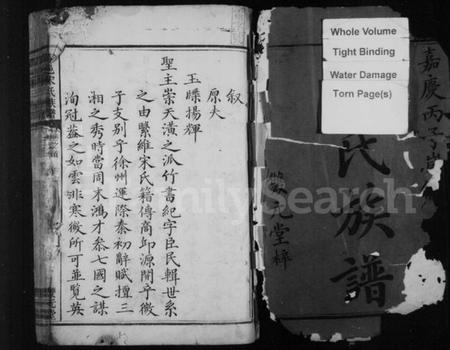 叙
原夫
玉牒揚輝
聖主崇天潢之派竹書紀字臣民輯世系
之由繄維宋氏籍傳商卽源開乎微
子支别乎徐州運際秦初辭賦擅三
湘之秀時當周末鴻才叅七國之謀
洵冠葢之如雲非寒微所可並覽英
Whole Volume
Tight Binding
Water Damage
Torn Page(s)
嘉慶丙子
氏族譜
元堂梓
FamilySearch